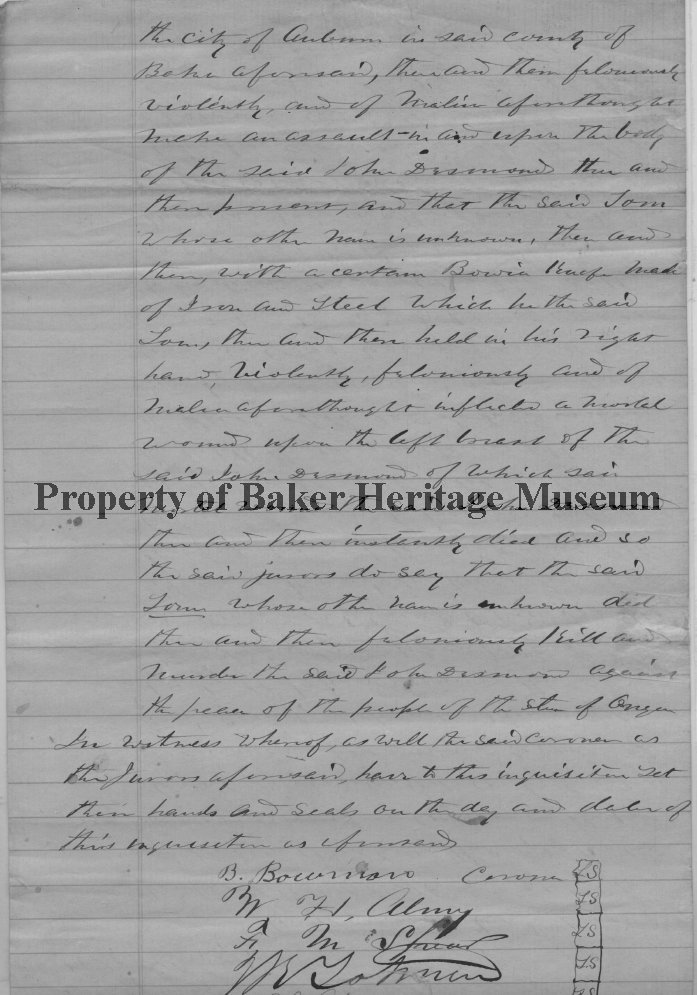 the city of Auburn in said county of
Baker aforesaid, then and there feloniously
violently, and of Malice aforethought
Make an assault in and upon the body
of the said John Desmond then and
there present, and that the said Tom
whose other Name is unknown, then and
there, with a certain Bowie Knife Made
of Iron and Steel Which he the said
Tom, then and there held in his right
hand, Violently, feloniously and of
Malice aforethought inflicted a Mortal
wound upon the left breast of the
said John Desmond of Which said
Property of Baker Heritage Museum
then and there instantly died and so
the said jurors do say that the said
Tom whose other Name is unknown did
then and there feloniously Kill and
Murder the said John Desmond against
the peace of the people of the State of Oregon
In witness whereof, as well the said Coroner as
the Jurors aforesaid, have to this inquisition set
their hands and seals on the day and date of
this inquisition as aforesaid
B. Bowman Coroner LS
W H, Almy LS
F M LS
LS